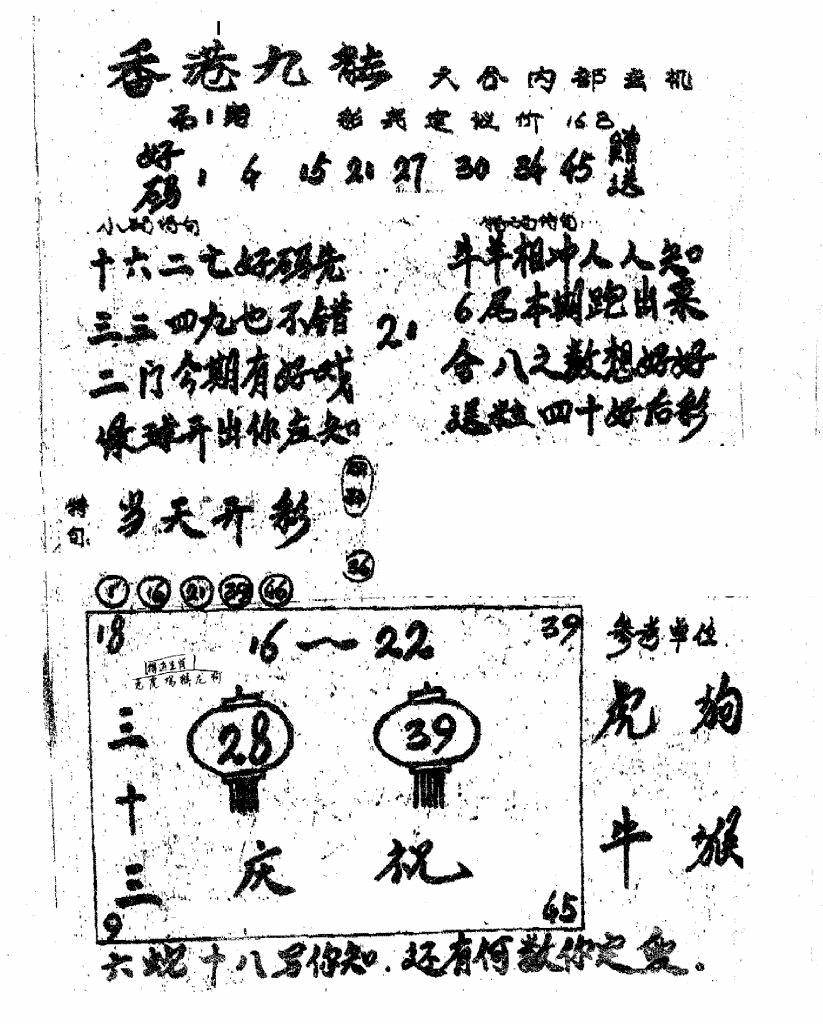 香港九龙 六合内部玄机
第1期 彩民建议价 168
好码 1 4 15 21 27 30 34 45 赠送
小码诗句
十六二七好码先
三三四九也不错
二门今期有好戏
绿球开出你应知
21
牛羊相冲人人知
6尾本期跑出来
合八之数想好好
送数四十好后彩
特句: 当天开彩
36
1 16 21 39 46
18 16~22 39
28 39
三十三
庆祝
9 45
参考单位
虎 狗
牛 猴
六蛇十八另你知.还有何数你定金。